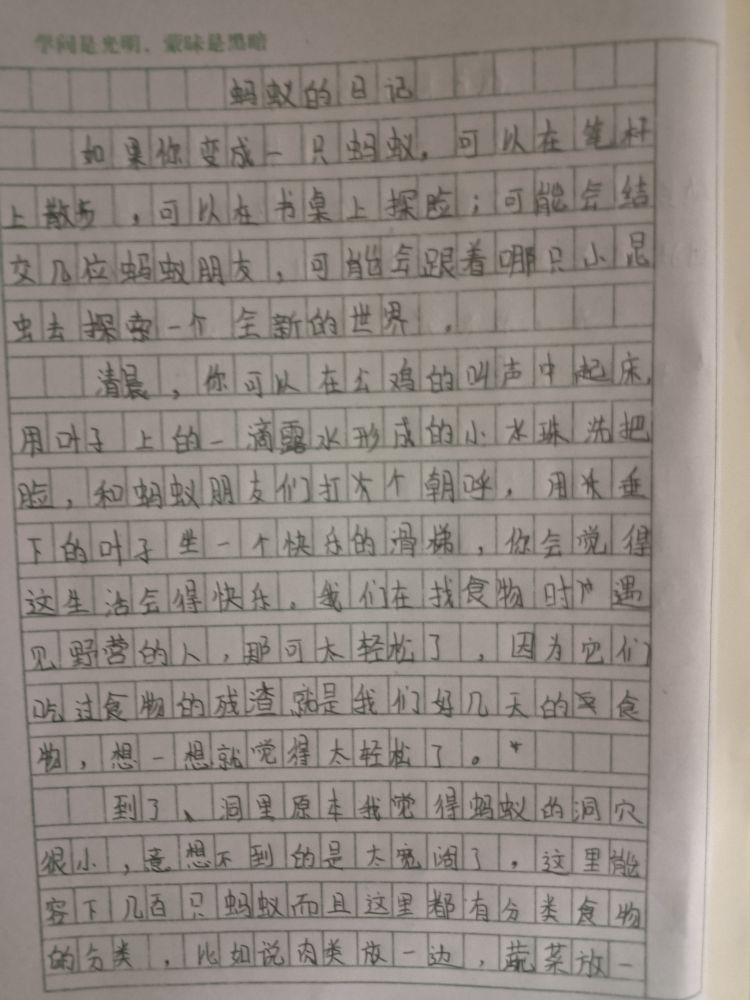 学问是光明，蒙昧是黑暗
蚂蚁的日记
如果你变成一只蚂蚁，可以在笔杆
上散步，可以在书桌上探险；可能会结
交几位蚂蚁朋友，可能会跟着哪只小昆
虫去探索一个全新的世界．
清晨，你可以在公鸡的叫声中起床，
用叶子上的一滴露水形成的小水珠洗把
脸，和蚂蚁朋友们打个朝呼，用垂
下的叶子坐一个快乐的滑梯，你会觉得
这生活会得快乐。我们在找食物时遇
见野营的人，那可太轻松了，因为它们
吃过食物的残渣就是我们好几天的食
物，想一想就觉得太轻松了。
到了、洞里原本我觉得蚂蚁的洞穴
很小，意想不到的是太宽阔了，这里能
容下几百只蚂蚁而且这里都有分类食物
的分类，比如说肉类放一边，蔬菜放一